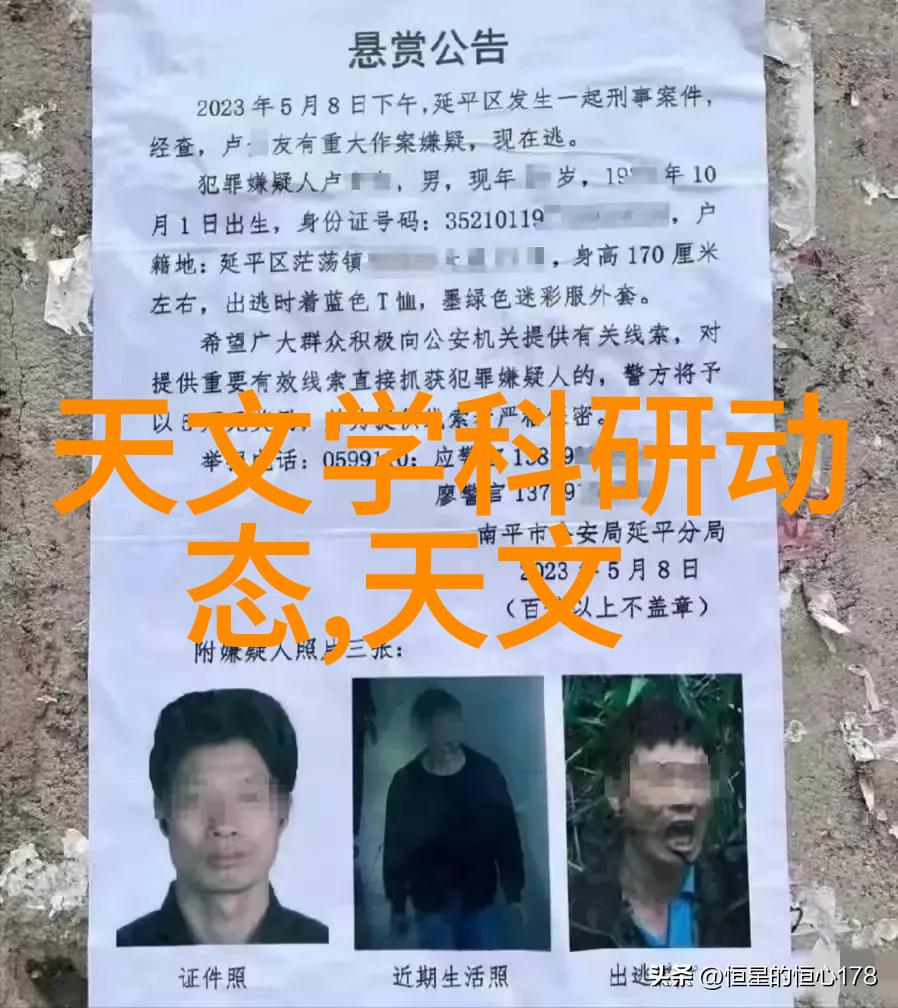 悬赏公告
2023年5月8日下午,延平区发生一起刑事案件,
经查,卢 友有重大作案嫌疑,现在逃。
犯罪嫌疑人卢 ,男,现年 岁,19 年10
月1日出生,身份证号码:35210119 ,户
籍地:延平区茫荡镇 ,身高170厘米
左右,出逃时着蓝色T恤,墨绿色迷彩服外套。
希望广大群众积极向公安机关提供有关线索,对
提供重要有效线索直接抓获犯罪嫌疑人的,警方将予
以
天文学科研动
举报电话:0599110;应警官138 9
廖警官137 9
南平市公安局延平分局
态,天文
2023年5月8日
(百张以上不盖章)
附嫌疑人照片三张:
证件照
近期生活照
出逃
头条 @恒星的恒心178